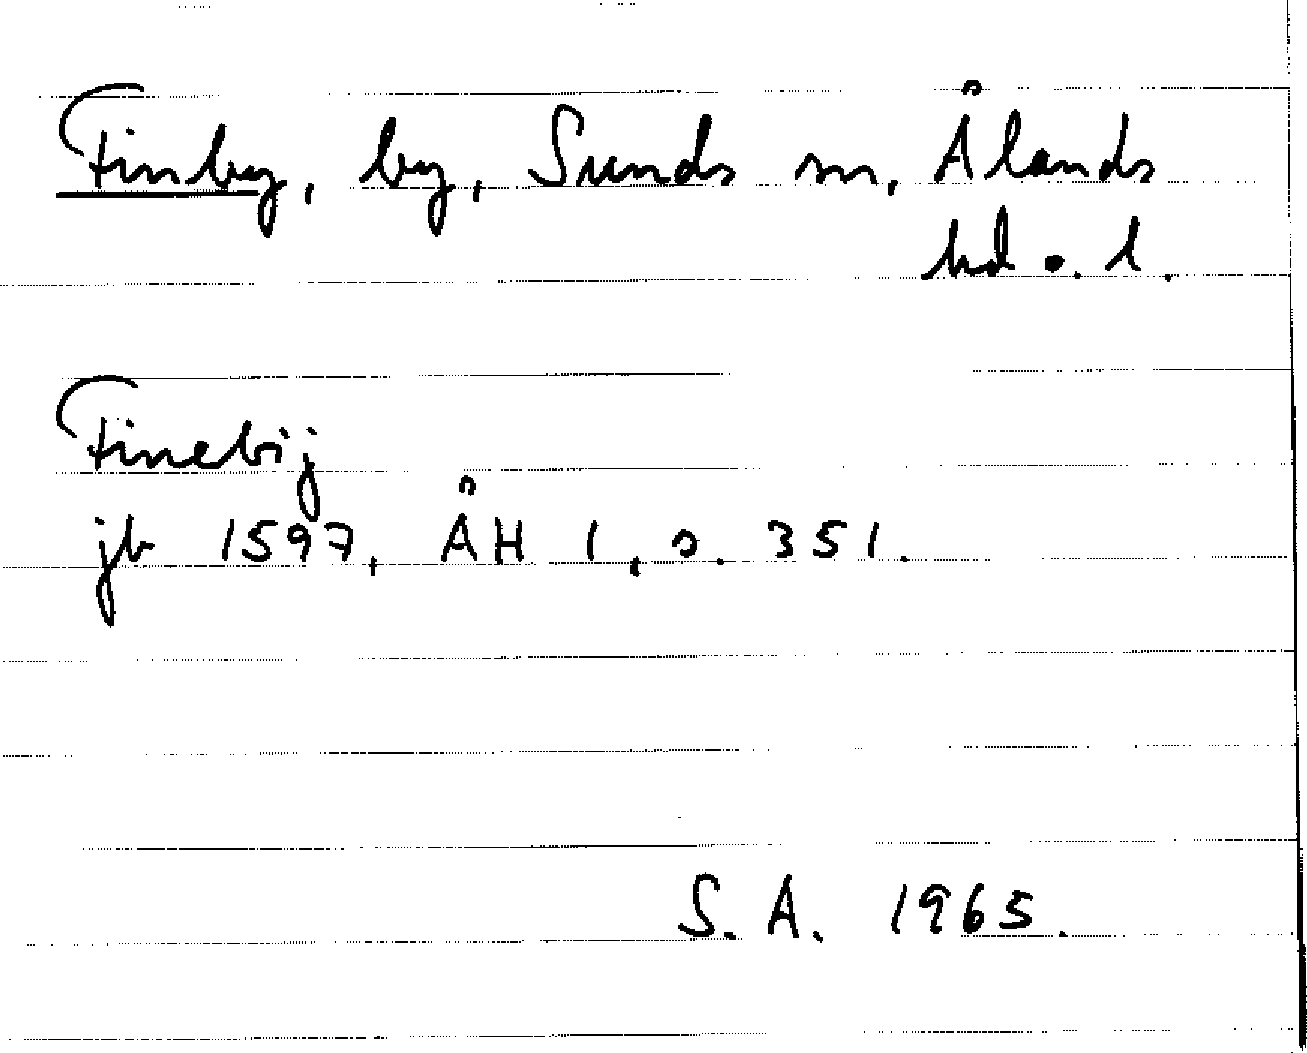 Finby, by, Sunds sn, Ålands
hd o. l.
Finebij
jb 1597, ÅH 1, s. 351.
S. A. 1965.